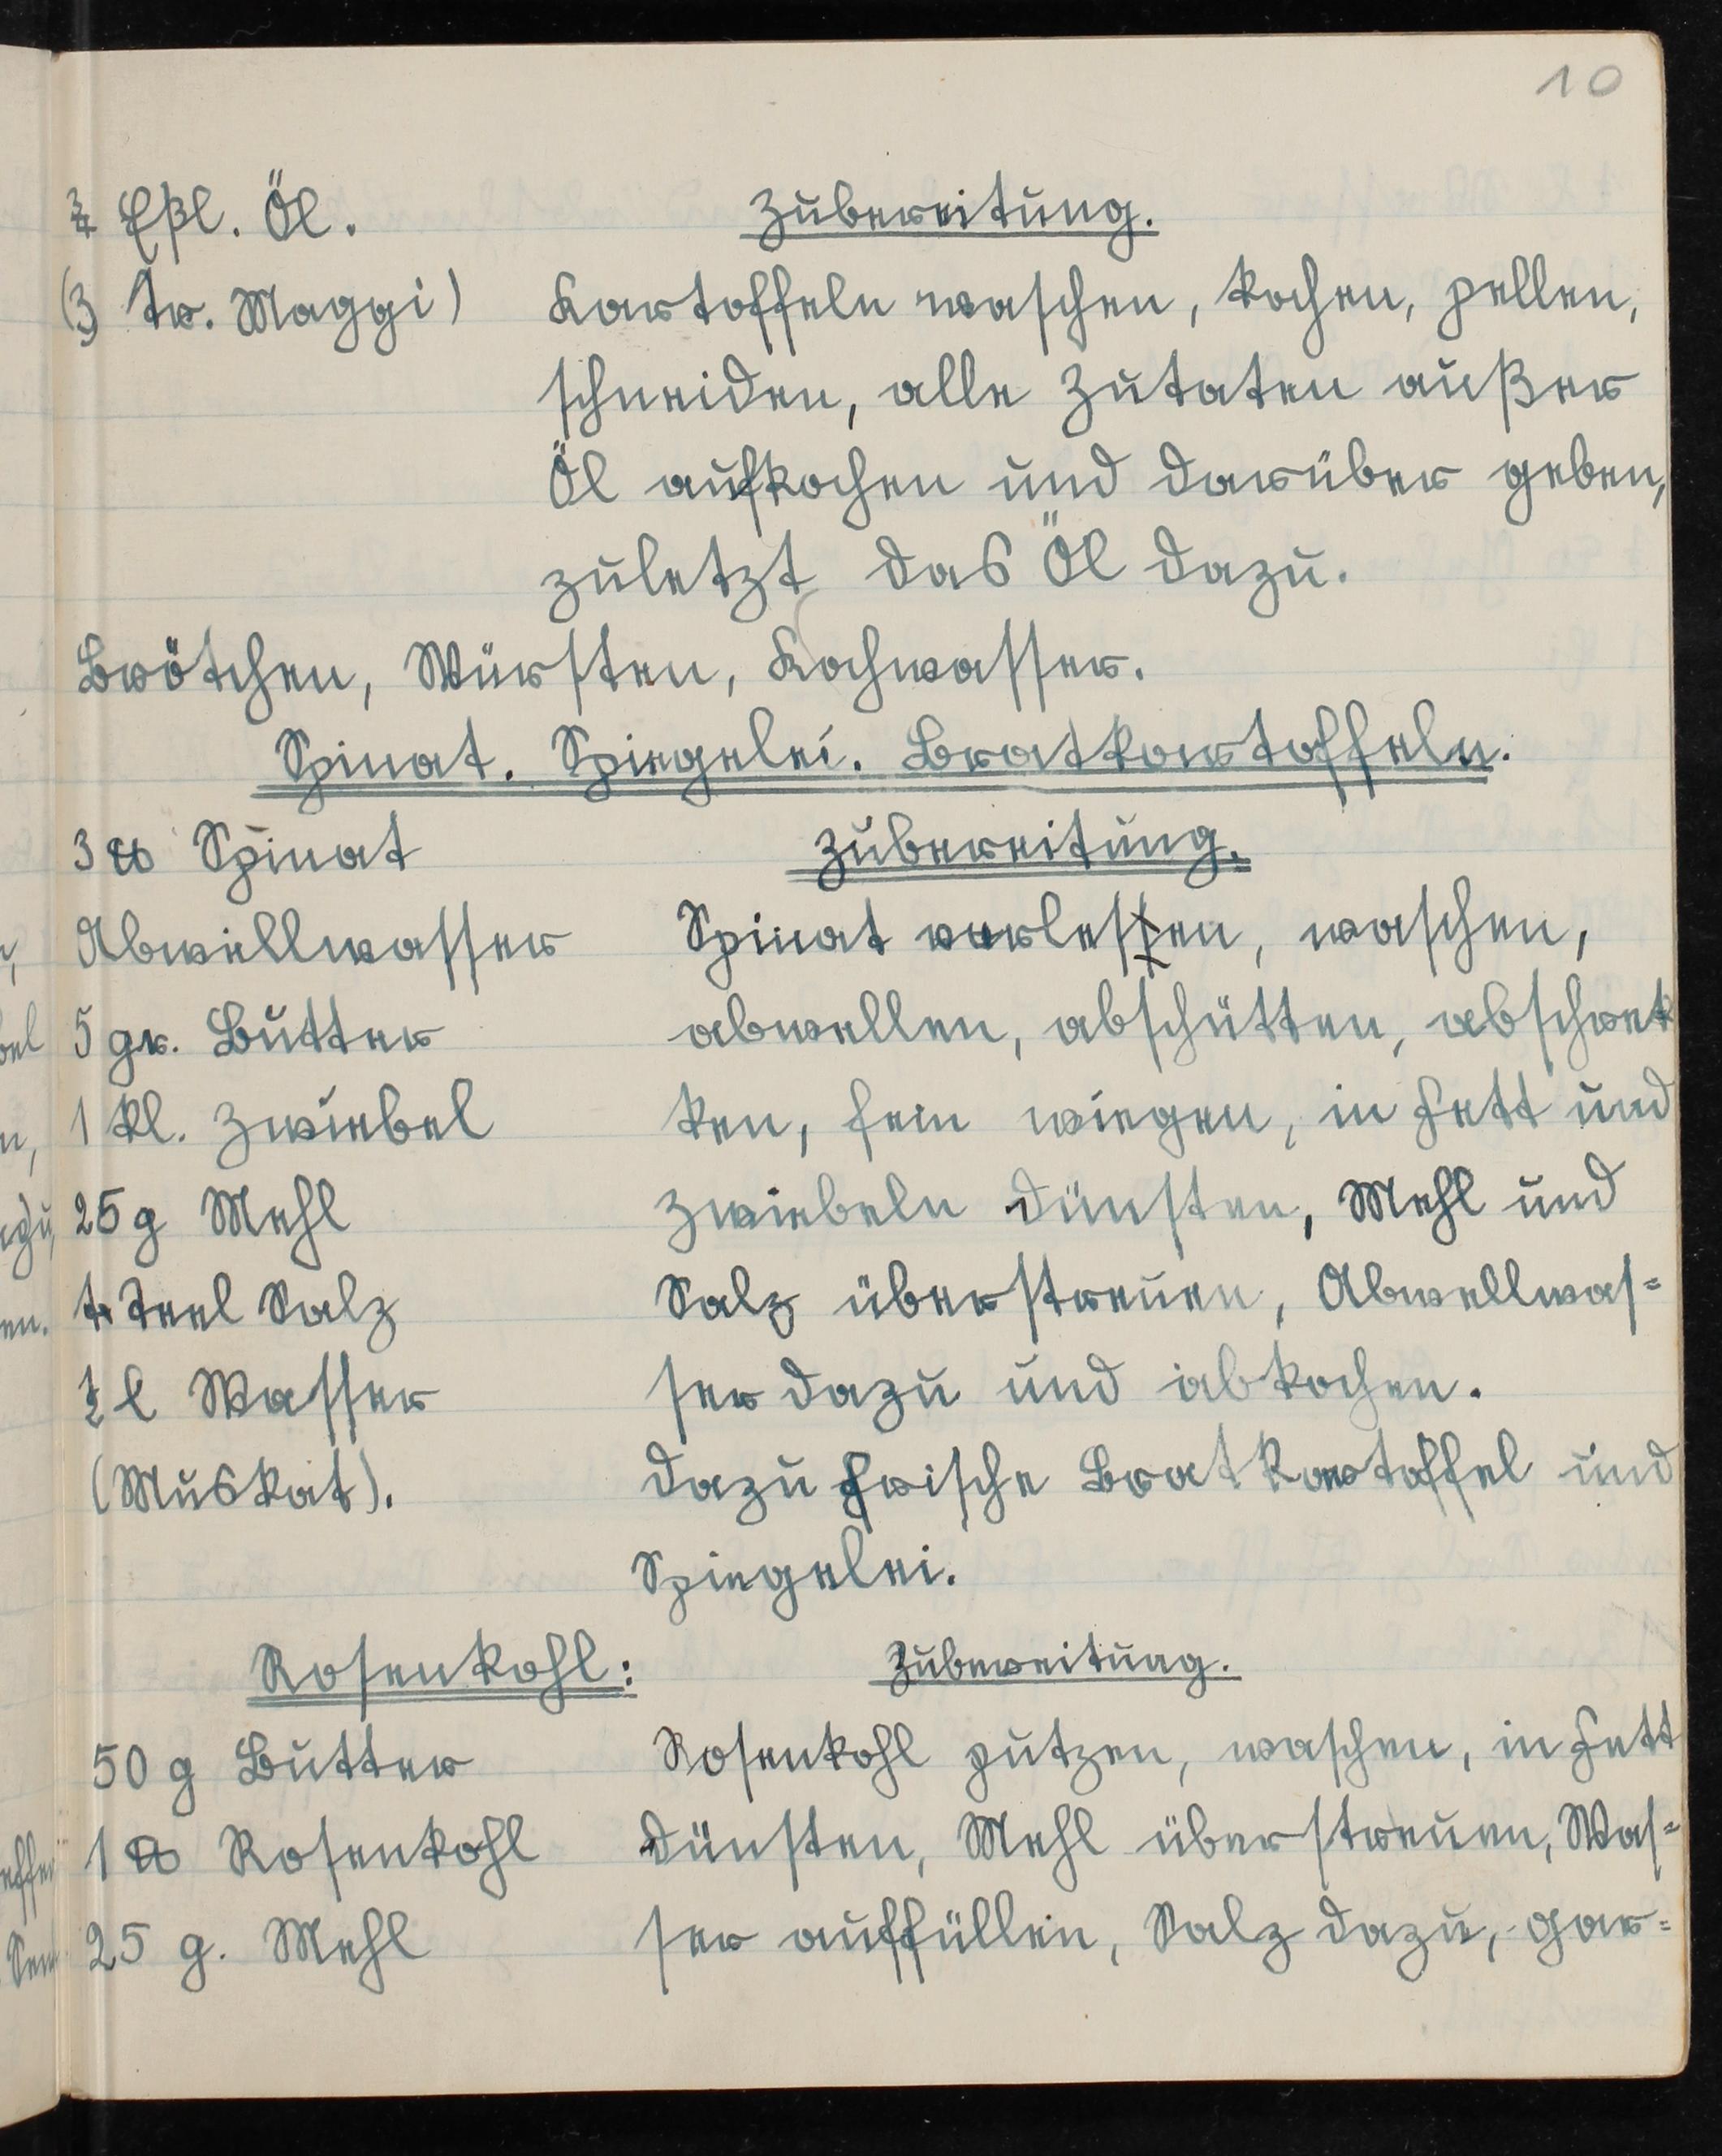 10
¾ Eßl. Öl. Zubereitung.
(3 Tr. Maggi) Kartoffeln waschen, kochen, pellen,
schneiden, alle Zutaten außer
Öl aufkochen und darüber geben,
zuletzt das Öl dazu.
Brötchen, Würsten, Kochwasser.
Spinat. Spiegelei. Bratkartoffeln.
3 ℔ Spinat Zubereitung.
Abwellwasser Spinat verlesen, waschen,
5 gr. Butter abwellen, abschütten, abschrek
1 kl. Zwiebel ken, fein wiegen, in Fett und
25 g Mehl Zwiebeln dünsten, Mehl und
Teel Salz Salz überstreuen, Abwellwas=
½ l Wasser ser dazu und abkochen.
(Muskat). Dazu frische Bratkartoffel und
Spiegelei.
Rosenkohl: Zubereitung.
50 g Butter Rosenkohl putzen, waschen, in Fett
1 ℔ Rosenkohl dünsten, Mehl überstreuen, Was=
25 g. Mehl ser auffüllen, Salz dazu, gar=